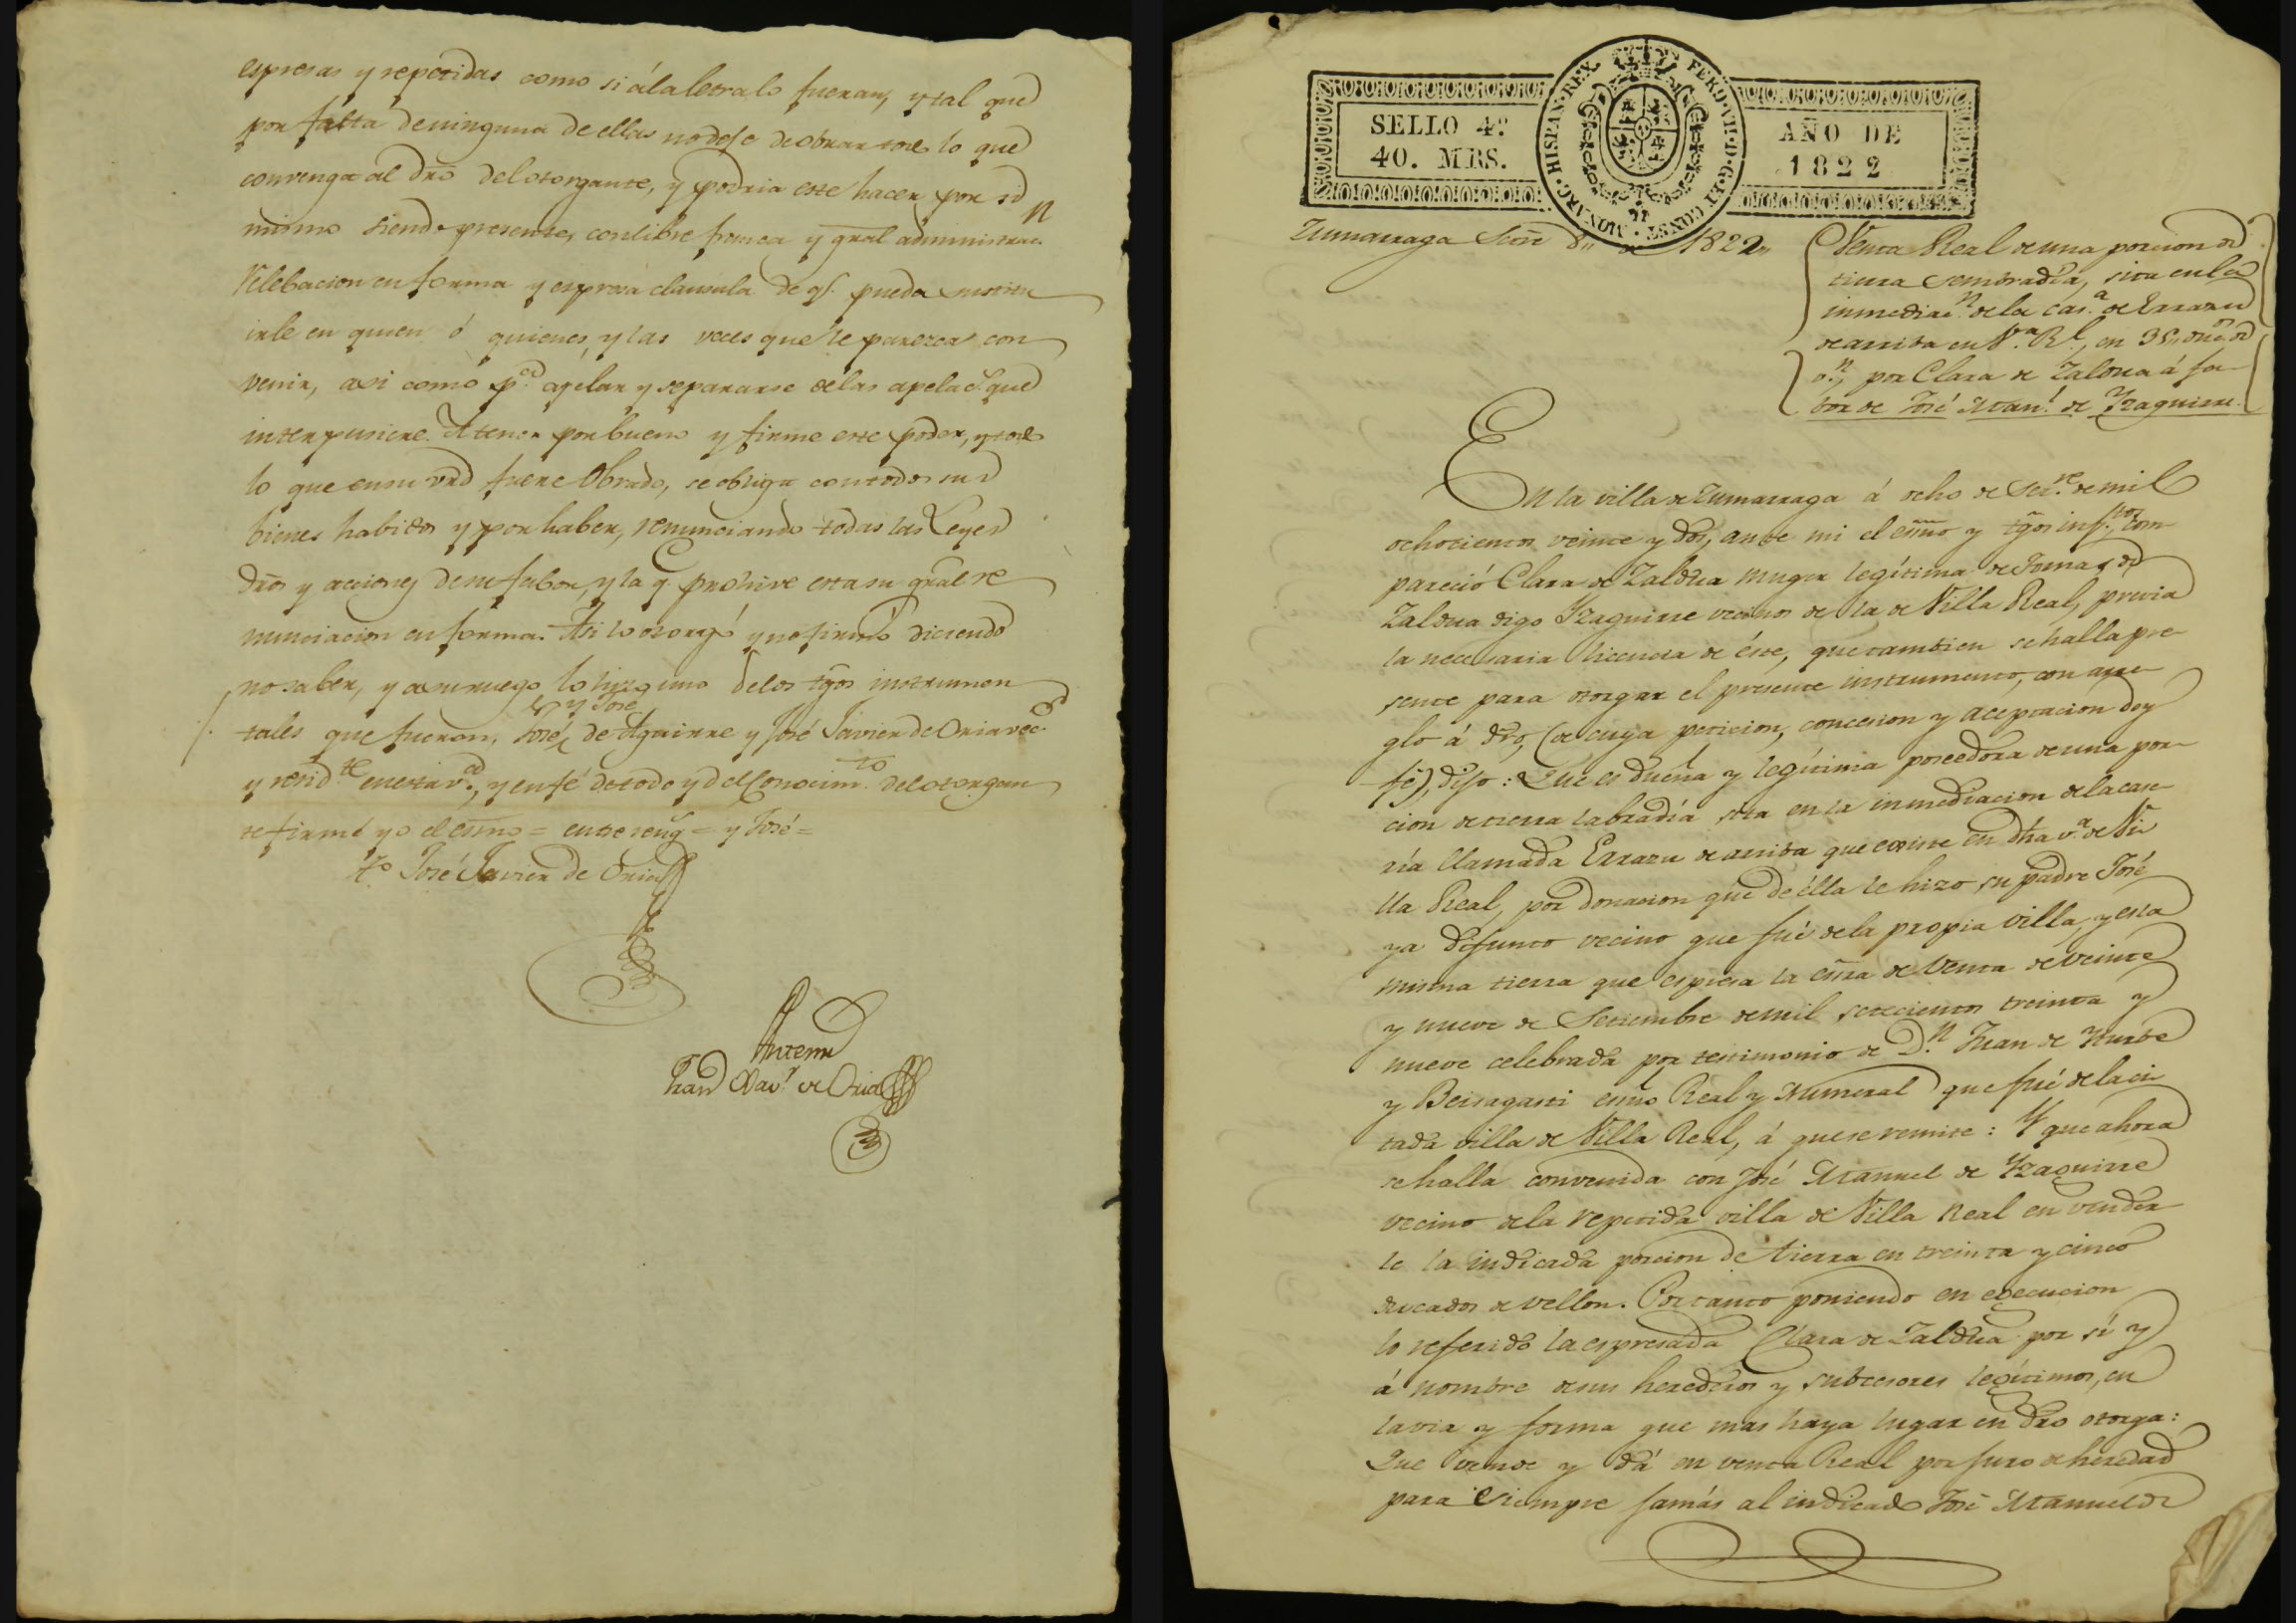 espresas y repetidas como si á la letra lo fueran, y tal que
por falta de ninguna de ellas no deje de obrar todo lo que
convenga al dr̃o del otorgante, y podria este hacer por sí
mismo siendo presente, con libre franca y gral administracn
relebacion en forma y espresa clausula de q.e pueda sostitu
irle en quien ó quienes, y las veces que le parezca con
venir, asi como p.a apelar y separarse de las apelac.s que
interpusiere. A tener por bueno y firme este poder, y todo
lo que en su vrd fuere obrado, se obliga con todos sus
bienes habidos y por haber, renunciando todas las Leyes
dr̃os y acciones de su fabor, y la q. prohive esta su gral re
nunciacion en forma. Asi lo otorgó y no firmó diciendo
no saber, y a su ruego lo hizo uno de los tg̃os instrumen
y José
tales que fueron, José de Aguirre y José Javier de Oria vec.s
y resid.te en esta v.a, y en fé de todo y del Conocim.to del otorgan
te firmé yo el es̃no = entre reng.s = y José =
T.o José Javier de Oria
Ante mi
Xav.r de Oria
SELLO 4.º
40. MRS.
FERD·VII·D·G·ET CONST·MONARC·HISPAN·REX
AÑO DE
1822
Zumarraga Setr̃e 8,, de 1822,,
Venta Real de una porcion de
tierra sembradía, sita en la
inmediac.n de la cas.a de Errazu
de arriba en V.a R.l, en 35,, duc.s de
v.n, por Clara de Zaldua á fa-
bor de José Man.l de Yzaguirre.
En la villa de Zumarraga á ocho de Set.re de mil
ochocientos veinte y dos, ante mi el es̃no y tg̃os inf.tos com-
pareció Clara de Zaldua muger legítima de Tomas de
Zaldua digo Yzaguirre vecinos de la de Villa Real, previa
la necesaria licencia de éste, que tambien se halla pre-
sente para otorgar el presente instrumento, con arre-
glo á dr̃o, (de cuya peticion, concesion y aceptacion doy
fé), dijo: Que es dueña y legítima poseedora de una por-
cion de tierra labradía sita en la inmediacion de la case-
ría llamada Errazu de arriba que existe en dha v.a de Vi
lla Real, por donacion que de élla le hizo su padre José
ya difunto vecino que fué de la propia villa, y esta
misma tierra que espresa la es̃ra de Venta de veinte
y nueve de Setiembre de mil setecientos treinta y
nueve celebrada por testimonio de D.n Juan de Yturbe
y Beisagasti es̃no Real y Numeral que fué de la ci
tada villa de Villa Real, á que se remite: Y que ahora
se halla convenida con José Manuel de Yzaguirre
vecino de la repetida villa de Villa Real en vender
le la indicada porcion de tierra en treinta y cinco
ducados de vellon. Por tanto poniendo en egecucion
lo referido la espresada Clara de Zaldua por sí y
á nombre de sus herederos y subcesores legítimos, en
la via y forma que mas haya lugar en dr̃o otorga:
Que vende y dá en venta Real por juro de heredad
para siempre jamás al indicado José Manuel de